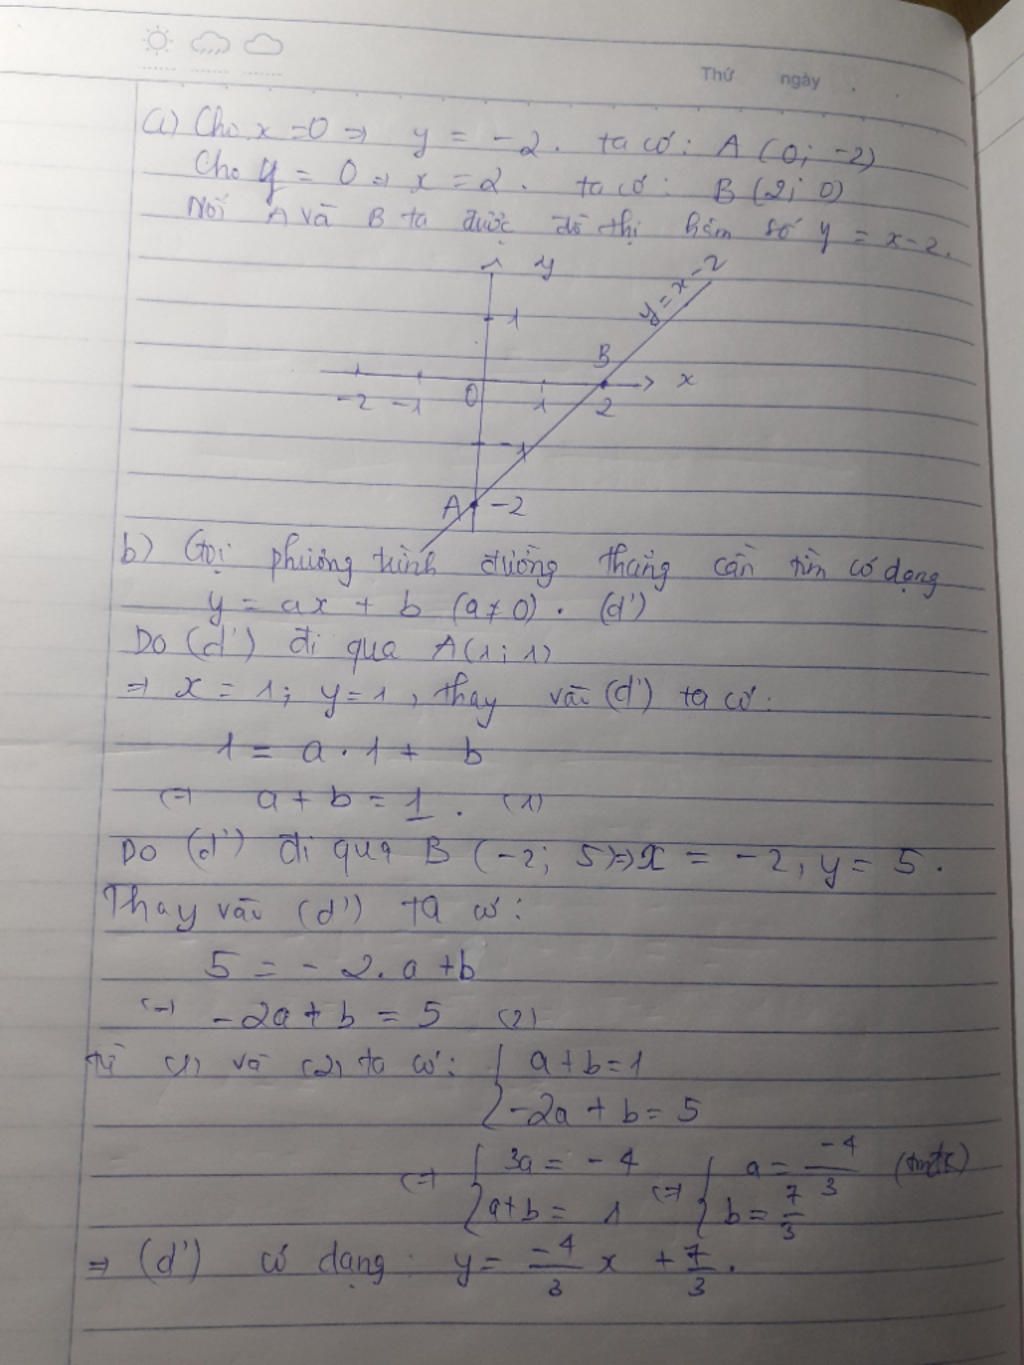 Thứ ngày
a) Cho x = 0 => y = -2. ta có: A (0; -2)
Cho y = 0 => x = 2. ta có: B (2; 0)
Nối A và B ta được đồ thị hàm số y = x - 2.
y
y = x - 2
1
B
x
-2 -1 0 1 2
-1
A -2
b) Gọi phương trình đường thẳng cần tìm có dạng
y = ax + b (a ≠ 0). (d')
Do (d') đi qua A(1; 1)
=> x = 1; y = 1, thay vào (d') ta có:
1 = a . 1 + b
<=> a + b = 1. (1)
Do (d') đi qua B (-2; 5) => x = -2, y = 5.
Thay vào (d') ta có:
5 = -2. a + b
<=> -2a + b = 5 (2)
từ (1) và (2) ta có: { a + b = 1
-2a + b = 5
<=> { 3a = -4 <=> { a = -4/3 (tmđk)
a + b = 1 b = 7/3
=> (d') có dạng: y = -4/3 x + 7/3.